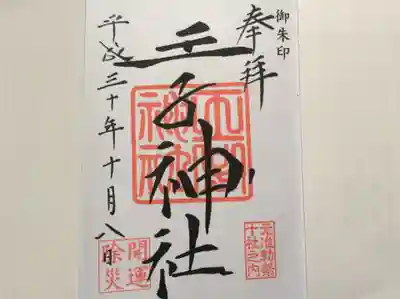 御朱印
奉拝
王子神社
王子神社
元准勅祭
十社之内
平成三十年十月八日
開運
除災